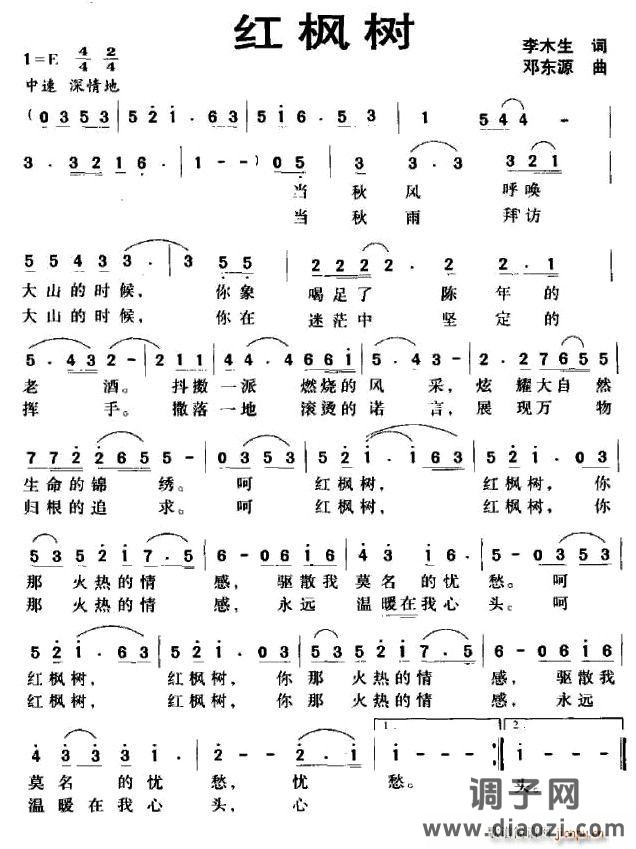 红枫树
1=E 4/4 2/4
李木生 词
中速 深情地
邓东源 曲
(0 3 5 3 | 5 2 1 · 6 3 | 5 1 6 · 5 3 | 1 5 4 4 |
3 · 3 2 1 6 · | 1 - - ) 0 5 | 3 3 · 3 3 2 1 |
当 秋 风 呼唤
当 秋 雨 拜访
5 5 4 3 3 · | 3 5 5 | 2 2 2 2 · 2 2 2 · 1 |
大山的时候, 你象 喝足了 陈 年的
大山的时候, 你在 迷茫中 坚 定的
5 · 4 3 2 - | 2 1 1 4 4 · 4 6 6 1 | 5 · 4 3 5 - | 2 · 2 7 6 5 5 |
老 酒。 抖擞一派 燃烧的风 采, 炫 耀大自然
挥 手。 撒落一地 滚烫的诺 言, 展 现万 物
7 7 2 2 6 5 5 - 0 3 5 3 | 5 2 1 · 1 6 3 | 5 2 1 · 0 3 |
生命的锦 绣。 呵 红枫树, 红枫树, 你
归根的追 求。 呵 红枫树, 红枫树, 你
5 3 5 2 1 7 · 5 | 6 - 0 6 1 6 | 4 3 1 1 6 · | 5 - 0 3 5 3 |
那 火热的情 感, 驱散我 莫名 的忧 愁。 呵
那 火热的情 感, 永远 温暖在我心 头。呵
5 2 1 · 6 3 | 5 2 1 · 0 3 | 5 3 5 2 1 7 · 5 | 6 - 0 6 1 6 |
红枫树, 红枫树, 你那 火热的情 感, 驱散我
红枫树, 红枫树, 你那 火热的情 感, 永远
4 3 3 3 1 | 2 - - 3 3 | 1 - - - | 1 - - - :| 1 - - - ||
1.
2.
莫名 的忧 愁, 忧 愁。 头。
温暖在我心 头, 心
调子网
www.diaozi.com